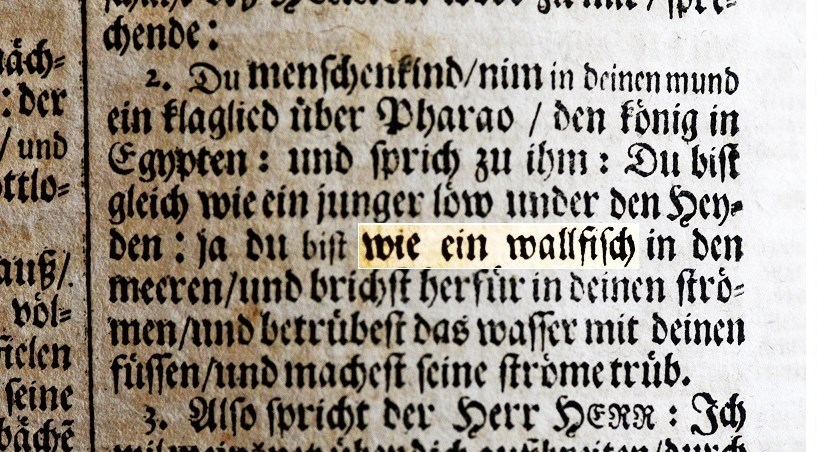 chende:
2. Du menschenkind/nim in deinen mund
ein klaglied über Pharao / den könig in
Egypten: und sprich zu ihm: Du bist
gleich wie ein junger löw under den Hey-
den: ja du bist wie ein wallfisch in den
meeren/und brichst herfür in deinen strö-
men/und betrübest das wasser mit deinen
füssen/und machest seine ströme trüb.
3. Also spricht der Herr HERR: Ich
näch-
: der
/ und
ottlo-
auß/
völ-
fielen
seine
bäche